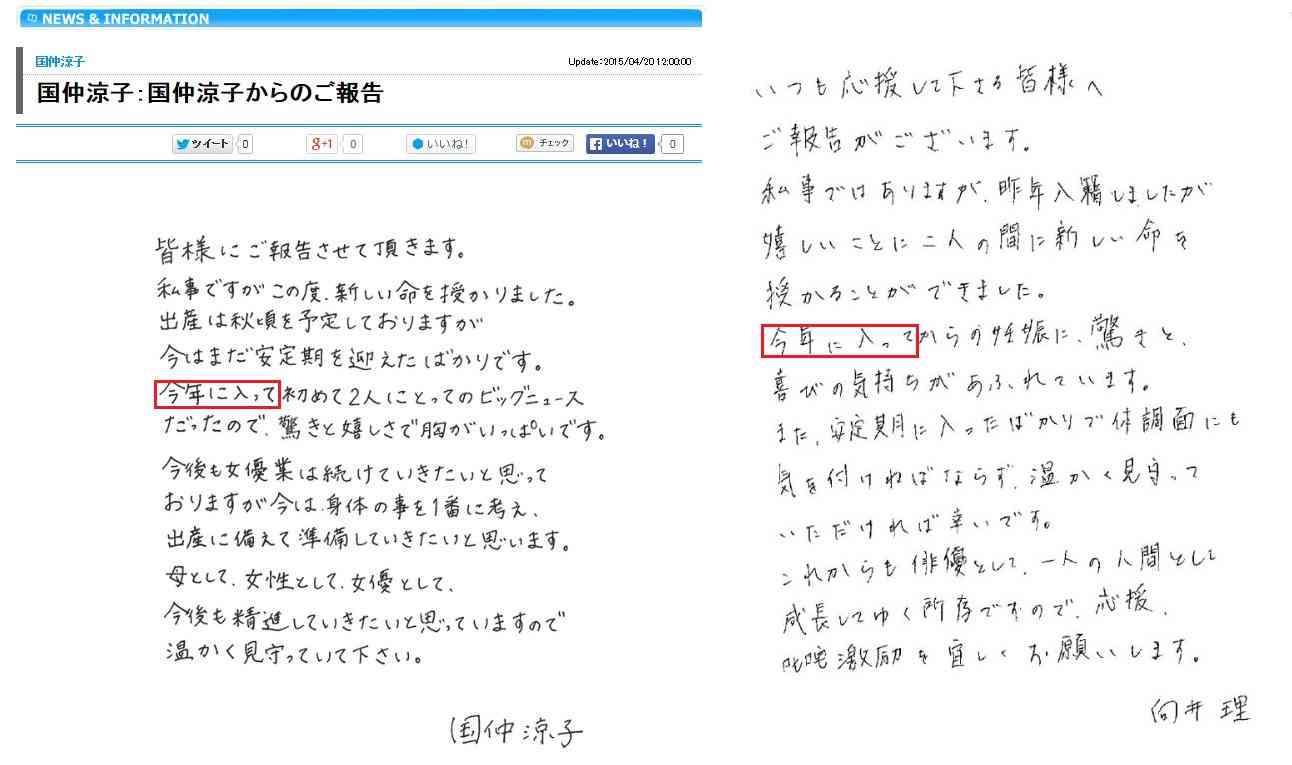 NEWS & INFORMATION
国仲涼子
Update:2015/04/20 12:00:00
国仲涼子:国仲涼子からのご報告
ツイート 0 g+1 0 いいね! チェック いいね! 0
皆様にご報告させて頂きます。
私事ですがこの度、新しい命を授かりました。
出産は秋頃を予定しておりますが
今はまだ安定期を迎えたばかりです。
今年に入って初めて2人にとってのビッグニュース
だったので、驚きと嬉しさで胸がいっぱいです。
今後も女優業は続けていきたいと思って
おりますが今は、身体の事を1番に考え、
出産に備えて準備していきたいと思います。
母として、女性として、女優として、
今後も精進していきたいと思っていますので
温かく見守っていて下さい。
国仲涼子
いつも応援して下さる皆様へ
ご報告がございます。
私事ではありますが、昨年入籍しましたが
嬉しいことに二人の間に新しい命を
授かることができました。
今年に入ってからの妊娠に、驚きと、
喜びの気持ちがあふれています。
また、安定期に入ったばかりで体調面にも
気を付けねばならず、温かく見守って
いただければ幸いです。
これからも俳優として、一人の人間として
成長してゆく所存ですので、応援、
叱咤激励を宜しくお願いします。
向井理